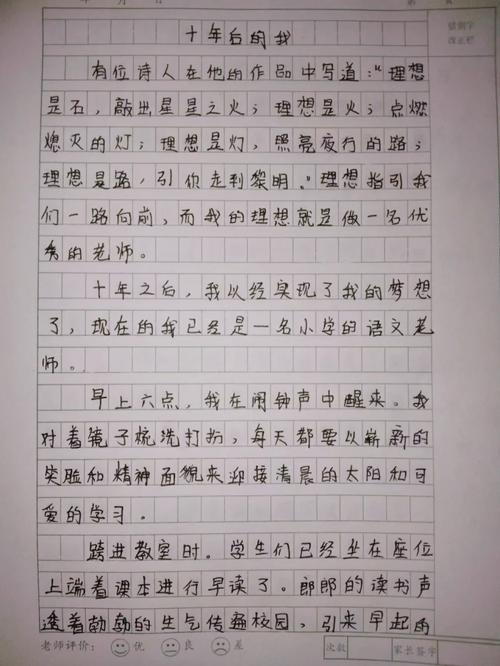 年 月 日 第 页
错别字
改正栏
十年后的我
有位诗人在他的作品中写道："理想
是石，敲出星星之火；理想是火；点燃
熄灭的灯；理想是灯，照亮夜行的路；
理想是路，引你走到黎明。"理想指引我
们一路向前，而我的理想就是做一名优
秀的老师。
十年之后，我以经实现了我的梦想
了，现在的我已经是一名小学的语文老
师。
早上六点，我在闹钟声中醒来。我
对着镜子梳洗打扮，每天都要以崭新的
笑脸和精神面貌来迎接清晨的太阳和可
爱的学习。
跨进教室时。学生们已经坐在座位
上端着课本进行早读了。郎郎的读书声
透着勃勃的生气传遍校园，引来早起的
老师评价： 优 良 差 次数 家长签字